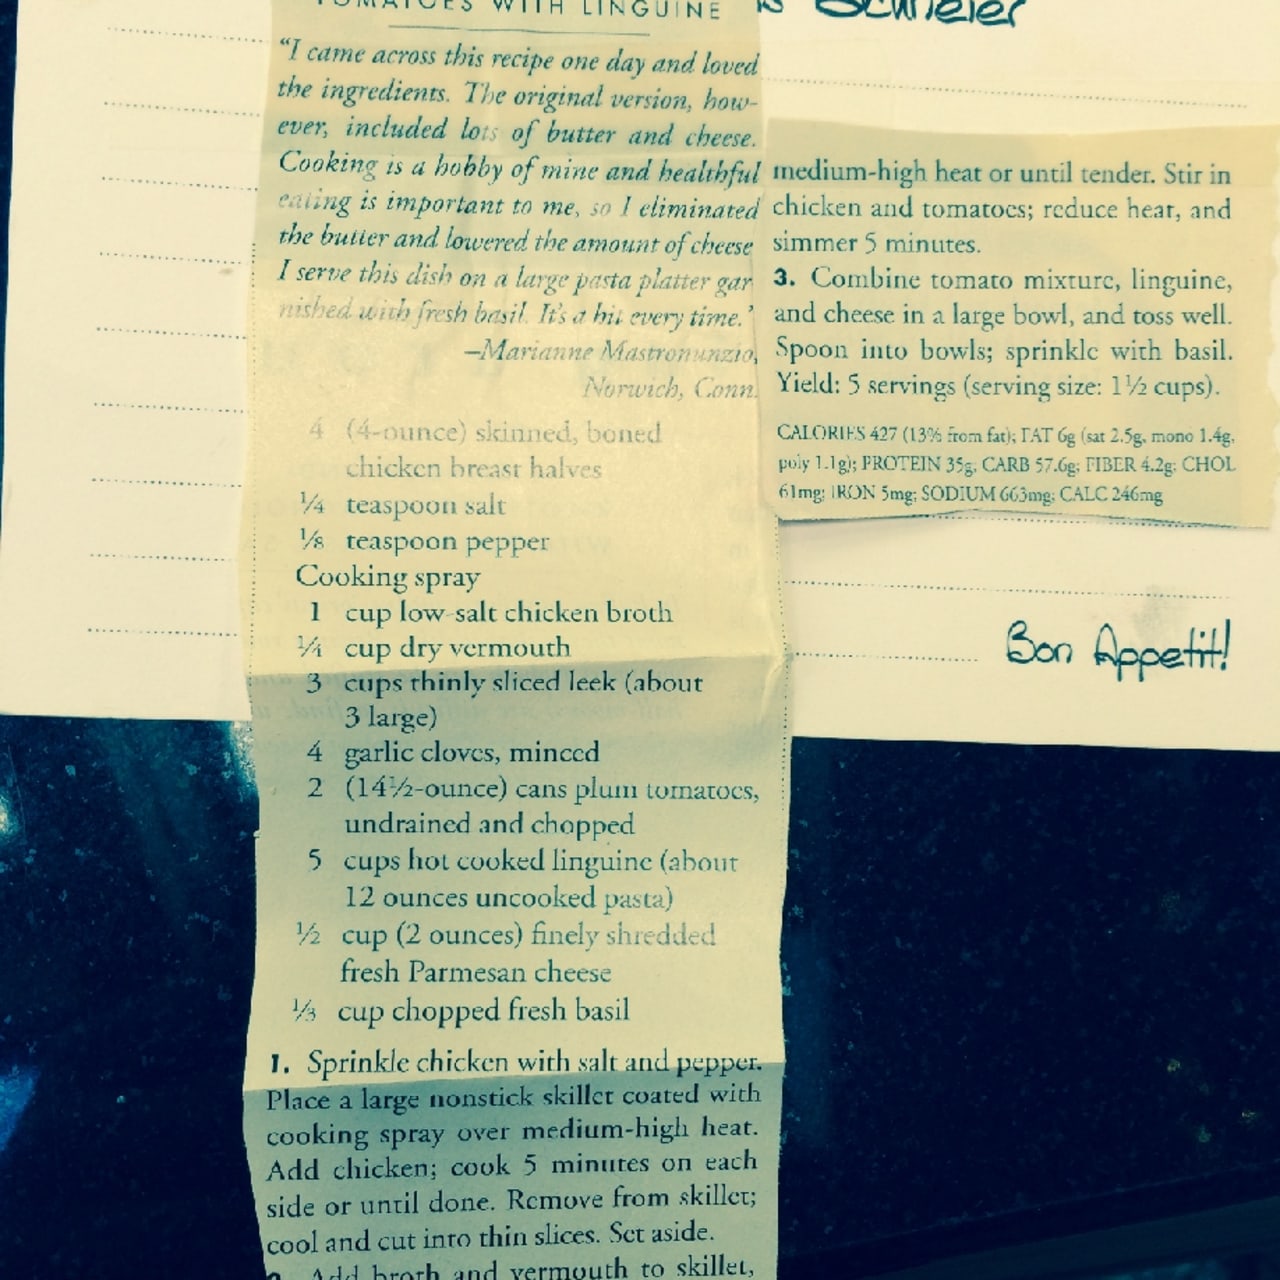 TOMATOES WITH LINGUINE
"I came across this recipe one day and loved
the ingredients. The original version, how-
ever, included lots of butter and cheese.
Cooking is a hobby of mine and healthful
eating is important to me, so I eliminated
the butter and lowered the amount of cheese
I serve this dish on a large pasta platter gar
nished with fresh basil. It's a hit every time.'
–Marianne Mastronunzio,
Norwich, Conn.
4 (4-ounce) skinned, boned
chicken breast halves
¼ teaspoon salt
⅛ teaspoon pepper
Cooking spray
1 cup low-salt chicken broth
¼ cup dry vermouth
3 cups thinly sliced leek (about
3 large)
4 garlic cloves, minced
2 (14½-ounce) cans plum tomatoes,
undrained and chopped
5 cups hot cooked linguine (about
12 ounces uncooked pasta)
½ cup (2 ounces) finely shredded
fresh Parmesan cheese
⅓ cup chopped fresh basil
1. Sprinkle chicken with salt and pepper.
Place a large nonstick skillet coated with
cooking spray over medium-high heat.
Add chicken; cook 5 minutes on each
side or until done. Remove from skillet;
cool and cut into thin slices. Set aside.
2. Add broth and vermouth to skillet,
is Schrieier
medium-high heat or until tender. Stir in
chicken and tomatoes; reduce heat, and
simmer 5 minutes.
3. Combine tomato mixture, linguine,
and cheese in a large bowl, and toss well.
Spoon into bowls; sprinkle with basil.
Yield: 5 servings (serving size: 1½ cups).
CALORIES 427 (13% from fat); FAT 6g (sat 2.5g, mono 1.4g,
poly 1.1g); PROTEIN 35g; CARB 57.6g; FIBER 4.2g; CHOL
61mg; IRON 5mg; SODIUM 663mg; CALC 246mg
Bon Appetit!